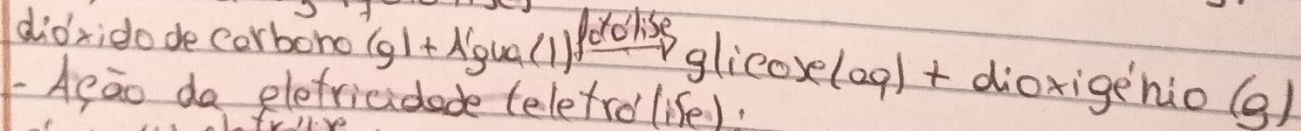 dióxido de carbono (g) + Água (l) fotólise→ glicose (aq) + dioxigénio (g)
- Ação da eletricidade (eletrólise).